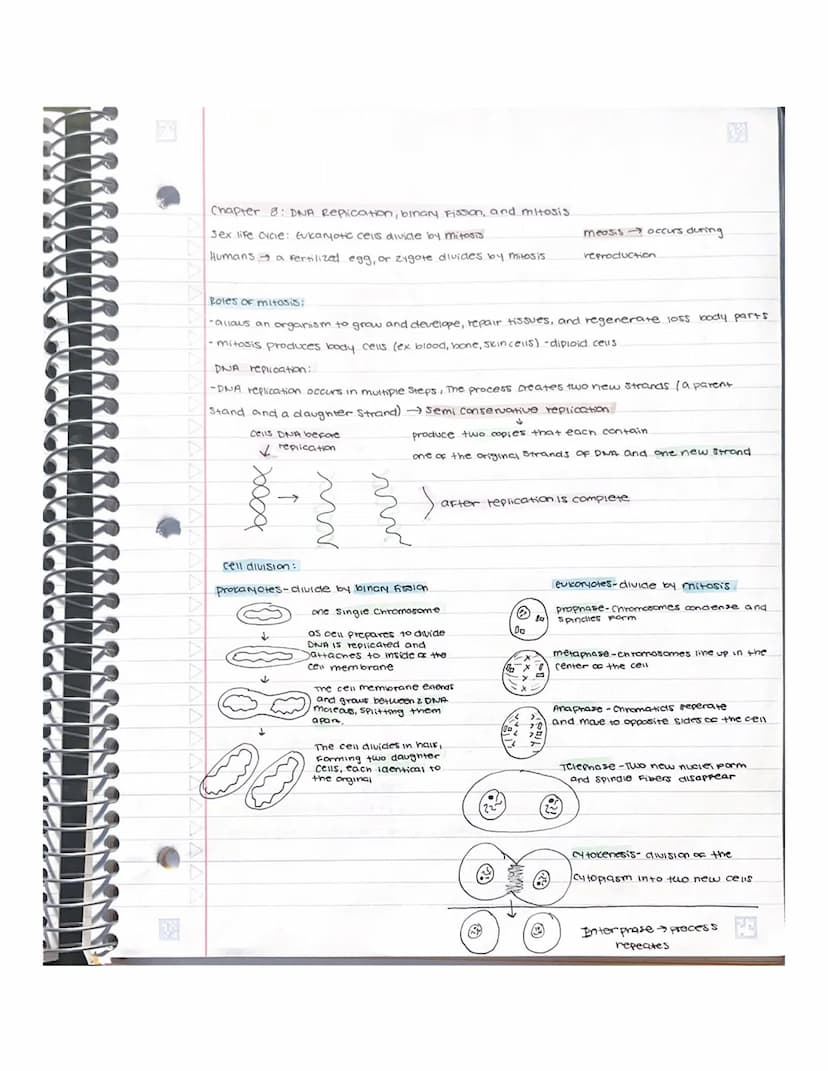 Chapter 8: DNA Replication, binary Fission, and mitosis
Sex life cycle: Eukaryotic cells divide by mitosis
meosis → occurs during
Humans → a fertilized egg, or zygote divides by mitosis
reproduction
Roles of mitosis:
-allows an organism to grow and develope, repair tissues, and regenerate loss body parts
- mitosis produces body cells (ex blood, bone, skin cells) -diploid cells
DNA replication:
-DNA replication occurs in multiple steps, The process creates two new strands (a parent
Stand and a daughter Strand) → Semi conservative replication
cells DNA before
replication
produce two copies that each contain
one of the original strands of DNA and one new strand
after replication is complete
cell division:
prokaryotes- divide by binary fission
one single chromosome
as cell prepares to divide
DNA is replicated and
attaches to inside of the
cell membrane
The cell membrane
and grows between 2 DNA
splitting them
apart.
The cell divides in half,
forming two daughter
cells, each identical to
the orginal
eukaryotes- divide by mitosis
prophase- Chromosomes condense and
spindles form
metaphase- chromosomes line up in the
center of the cell
Anaphase - Chromatids seperate
and move to opposite sides of the cell
Telephase - Two new nuclei form
and spindle fibers disappear
cytokenesis- division of the
cytoplasm into two new cells
Interphase → process
repeates